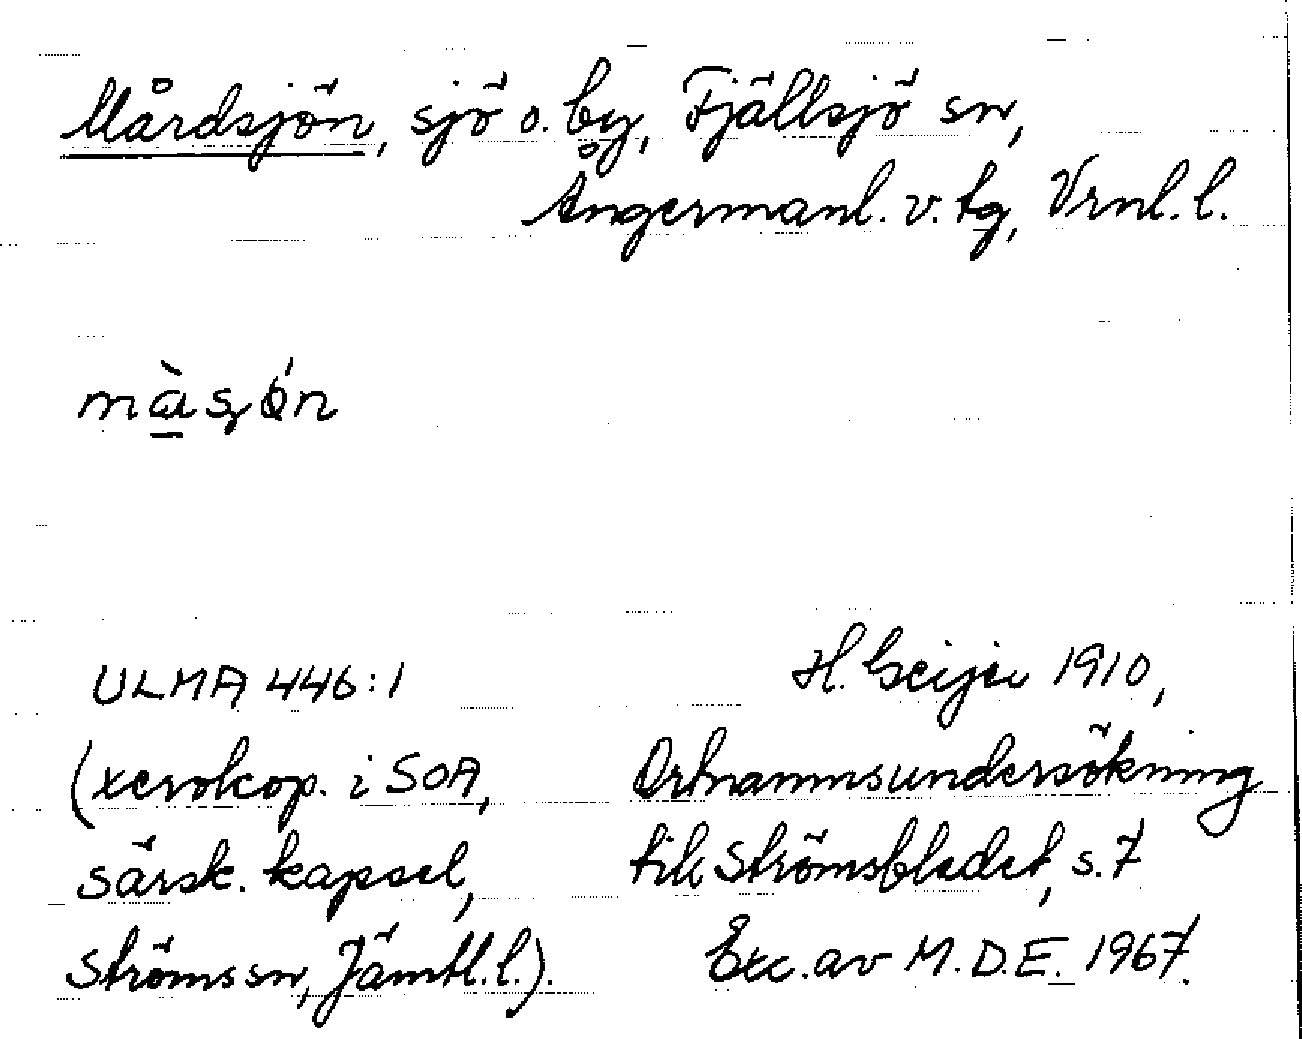 Mårdsjön, sjö o. by, Fjällsjö sn,
Ångermanl. v. tg, Vrnl. l.
ULMA 446:1
(xerokop. i SOA,
särsk. kapsel,
Ströms sn, Jämtl. l.).
H. Geijer 1910,
Ortnamnsundersökning
till Strömsbladet, s. 7
Exc. av M.D.E. 1967.